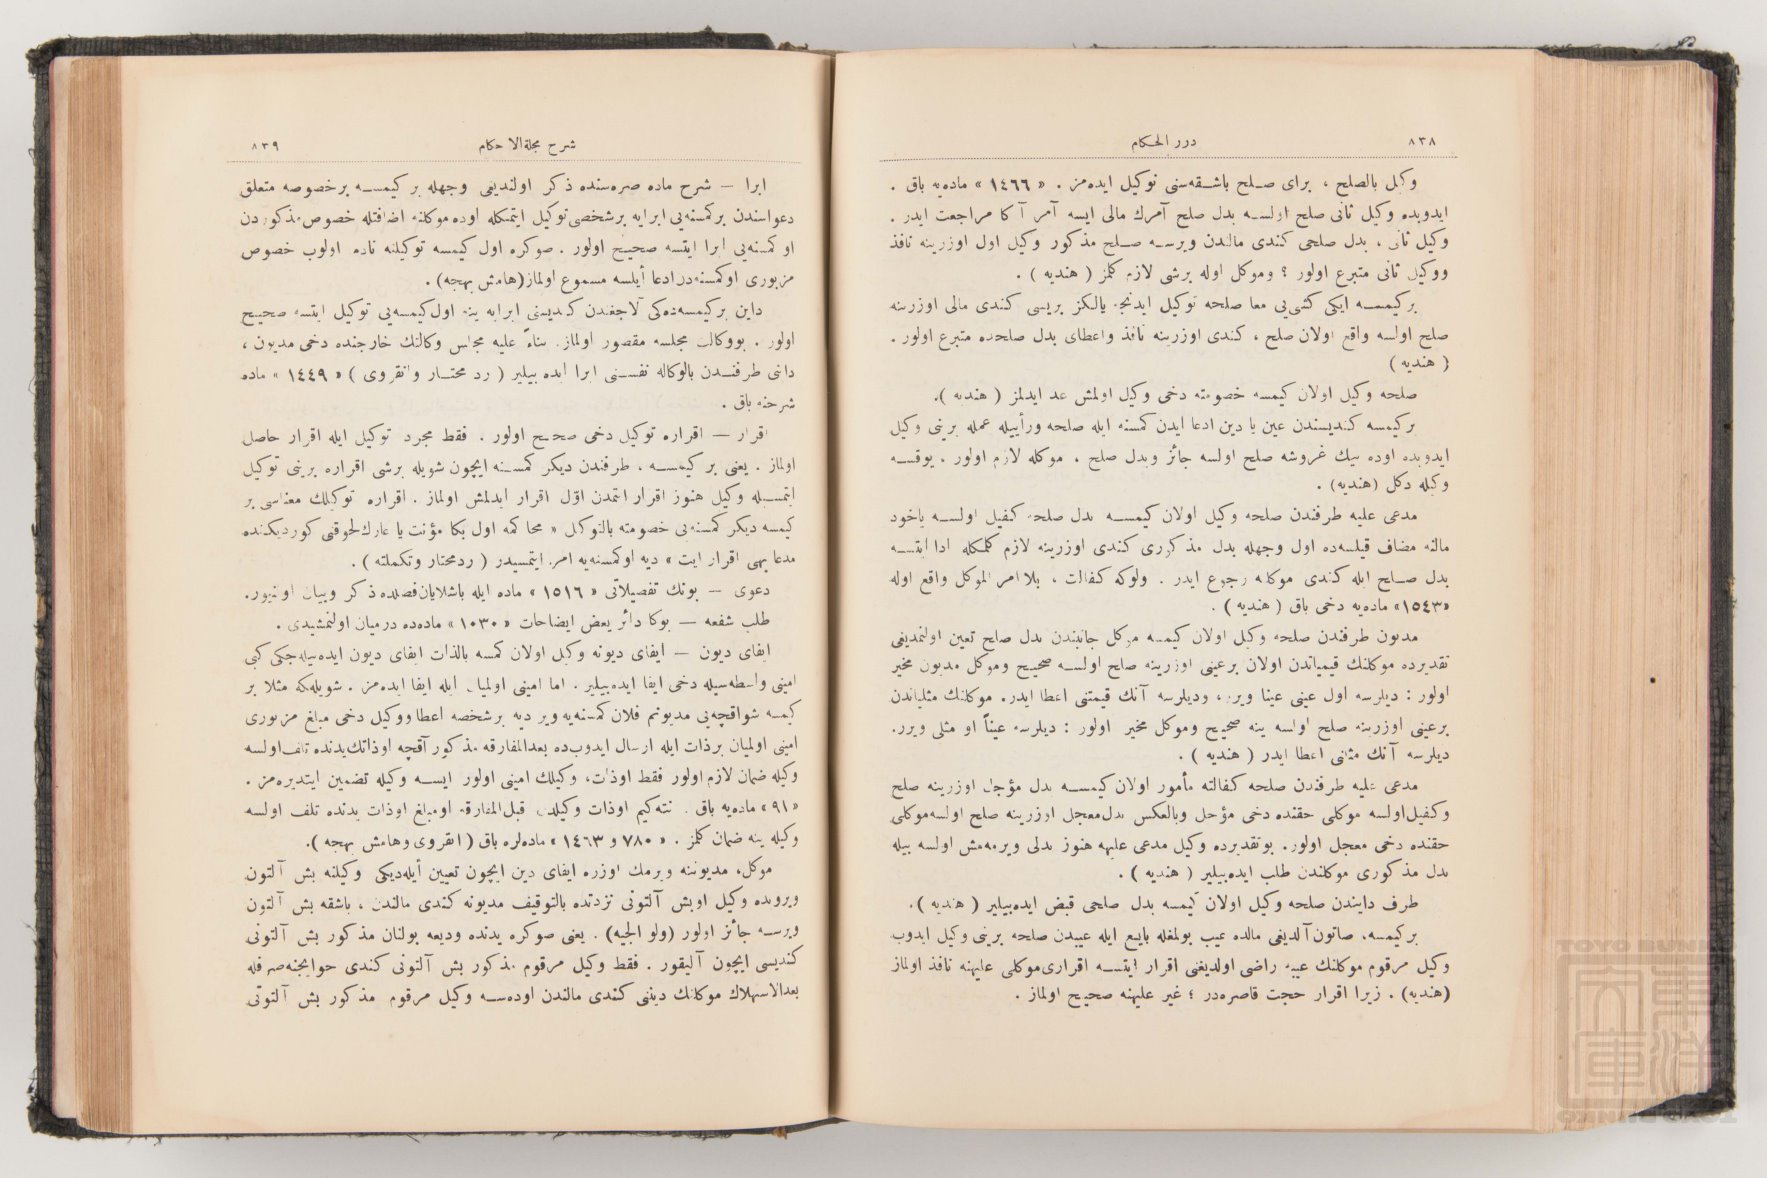 ٨٣٨
درر الحكام
وكيل بالصلح ، براى صلح باشقه‌سنى توكيل ايده‌مز . « ١٤٦٦ » ماده‌يه باق .
ايدوبده وكيل ثانى صلح اولسه بدل صلح آمرك مالى ايسه آمر آكا مراجعت ايدر .
وكيل ثانى ، بدل صلحى كندى مالندن ويرسه صلح مذكور وكيل اول اوزرينه نافذ
ووكيل ثانى متبرع اولور ؟ وموكل اوله برشى لازم كلمز ( هنديه ) .
بركيمسه ايكى كشى‌يى معا صلحه توكيل ايدنجه يالكز بريسى كندى مالى اوزرينه
صلح اولسه واقع اولان صلح ، كندى اوزرينه نافذ واعطاى بدل صلحده متبرع اولور .
( هنديه )
صلحه وكيل اولان كيمسه خصومته دخى وكيل اولمش عد ايدلمز ( هنديه ).
بركيمسه كنديسندن عين يا دين ادعا ايدن كمسنه ايله صلحه ورأييله عمله برينى وكيل
ايدوبده اوده بيك غروشه صلح اولسه جائز وبدل صلح ، موكله لازم اولور . يوقسه
وكيله دكل (هنديه) .
مدعى عليه طرفندن صلحه وكيل اولان كيمسه بدل صلحه كفيل اولسه ياخود
مالنه مضاف قيلسه‌ده اول وجهله بدل مذكورى كندى اوزرينه لازم كلمكله ادا ايتسه
بدل صلح ايله كندى موكله رجوع ايدر . ولوكه كفالت ، بلا امر الموكل واقع اوله
«١٥٤٣» ماده‌يه دخى باق ( هنديه ) .
مديون طرفندن صلحه وكيل اولان كيمسه موكل جانبندن بدل صلح تعيين اولنمديغى
تقديرده موكلنك قيمياتدن اولان برعينى اوزرينه صلح اولسه صحيح وموكل مديون مخير
اولور : ديلرسه اول عينى عينا ويرر ، وديلرسه آنك قيمتنى اعطا ايدر. موكلنك مثلياتدن
برعينى اوزرينه صلح اولسه ينه صحيح وموكل مخير اولور : ديلرسه عيناً او مثلى ويرر.
ديلرسه آنك مثلنى اعطا ايدر ( هنديه ) .
مدعى عليه طرفندن صلحه كفالته مأمور اولان كيمسه بدل مؤجل اوزرينه صلح
وكفيل‌اولسه موكلى حقنده دخى مؤجل وبالعكس بدل‌معجل اوزرينه صلح اولسه‌موكلى
حقنده دخى معجل اولور. بوتقديرده وكيل مدعى عليهه هنوز بدلى ويرمه‌مش اولسه بيله
بدل مذكورى موكلندن طلب ايده‌بيلير ( هنديه ) .
طرف دايندن صلحه وكيل اولان كيمسه بدل صلحى قبض ايده‌بيلير ( هنديه ).
بركيمسه، صاتون‌آلديغى مالده عيب بولمغله بايع ايله عيبدن صلحه برينى وكيل ايدوب
وكيل مرقوم موكلنك عيبه راضى اولديغنى اقرار ايتسه اقرارى‌موكلى عليهنه نافذ اولماز
(هنديه) . زيرا اقرار حجت قاصره‌در ؛ غير عليهنه صحيح اولماز .
شرح مجلة الاحكام
٨٣٩
ابرا — شرح ماده صره‌سنده ذكر اولنديغى وجهله بر كيمسه برخصوصه متعلق
دعواسندن بركمسنه‌يى ابرايه برشخصى توكيل ايتمكله اوده موكلنه اضافتله خصوص مذكوردن
او كمسنه‌يى ابرا ايتسه صحيح اولور . صوكره اول كيمسه توكيلنه نادم اولوب خصوص
مزبورى اوكمسنه‌دن ادعا أيلسه مسموع اولماز(هامش بهجه) .
داين بركيمسه‌ده‌كى آلاجغندن كنديسنى ابرايه ينه اول كيمسه‌يى توكيل ايتسه صحيح
اولور . بووكالت مجلسه مقصور اولماز. بناءً عليه مجلس وكالتك خارجنده دخى مديون ،
دائنى طرفندن بالوكاله نفسنى ابرا ايده بيلير ( رد محتار وانقروى ) « ١٤٤٩ » ماده
شرحنه باق .
اقرار — اقراره توكيل دخى صحيح اولور . فقط مجرد توكيل ايله اقرار حاصل
اولماز . يعنى بر كيمسه ، طرفندن ديكر كمسنه ايچون شويله برشى اقراره برينى توكيل
ايتمسيله وكيل هنوز اقرار ايتمدن اوّل اقرار ايدلمش اولماز . اقراره توكيلك معناسى بر
كيمسه ديكر كمسنه‌يى خصومته بالتوكيل « محاكمه اول بكا مؤنت يا عارك‌لحوقنى كورديكنده
مدعا بهى اقرار ايت » ديه اوكمسنه‌يه امر ايتمسيدر ( ردمحتار وتكملته ) .
دعوى — بونك تفصيلاتى « ١٥١٦ » ماده ايله باشلايان‌فصلده ذكر وبيان اولنيور.
طلب شفعه — بوكا دائر بعض ايضاحات « ١٠٣٠ » ماده‌ده درميان اولنمشيدى .
ايفاى ديون — ايفاى ديونه وكيل اولان كمسه بالذات ايفاى ديون ايده‌بيله‌جكى كبى
امينى واسطه‌سيله دخى ايفا ايده‌بيلير . اما امينى اولميان ايله ايفا ايده‌مز . شويله‌كه مثلا بر
كيمسه شواقچه‌يى مديونم فلان كمسنه‌يه وير ديه برشخصه اعطا ووكيل دخى مبلغ مزبورى
امينى اولميان برذات ايله ارسال ايدوب‌ده بعدالمفارقه مذكور آقچه اوذاتك‌يدنده تلف‌اولسه
وكيله ضمان لازم اولور فقط اوذات، وكيلك امينى اولور ايسه وكيله تضمين ايتديره‌مز .
«٩١» ماده‌يه باق . نته‌كيم اوذات وكيلدن قبل‌المفارقه اومبلغ اوذات يدنده تلف اولسه
وكيله ينه ضمان كلمز . « ٧٨٠ و ١٤٦٣ » ماده‌لره باق ( انقروى وهامش بهجه ).
موكل، مديوننه ويرمك اوزره ايفاى دين ايچون تعيين أيله‌ديكى وكيلنه بش آلتون
ويروبده وكيل اوبش آلتونى نزدنده بالتوقيف مديونه كندى مالندن ، باشقه بش آلتون
ويرسه جائز اولور (ولو الجيه) . يعنى صوكره يدنده وديعه بولنان مذكور بش آلتونى
كنديسى ايچون آليقور . فقط وكيل مرقوم مذكور بش آلتونى كندى حوايجنه‌صرفله
بعدالاستهلاك موكلنك دينى كندى مالندن اوده‌سه وكيل مرقوم مذكور بش آلتونى